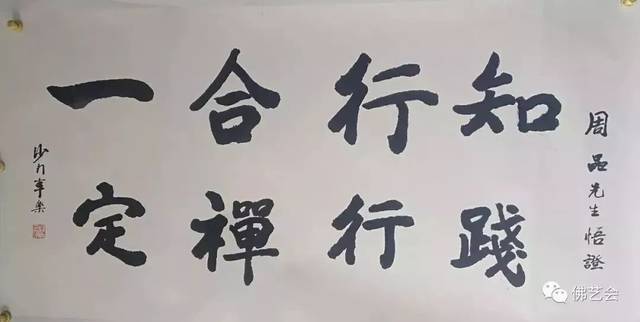 周品先生悟證
知行合一
踐行禪定
沙门
佛艺会